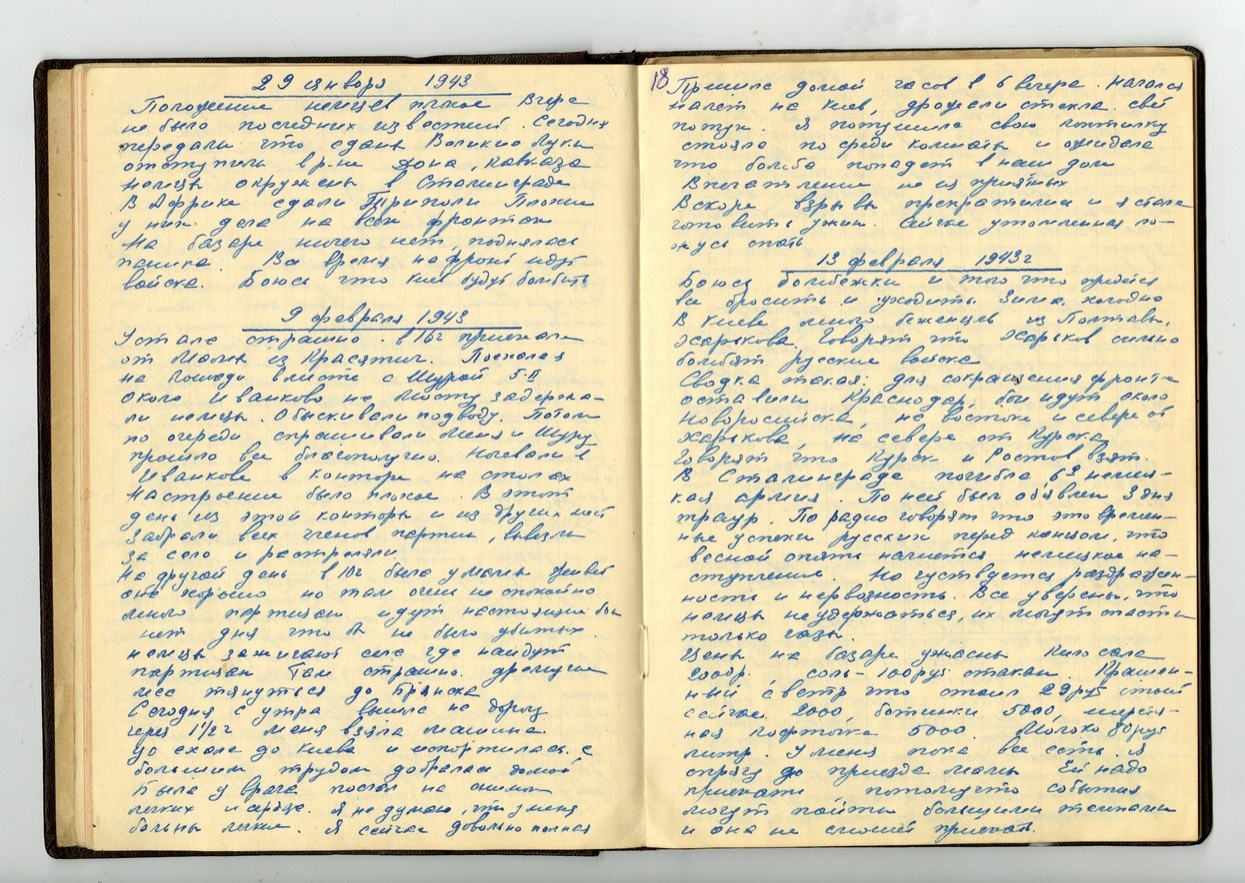 29 января 1943
Положение немцев плохое Вчера
не было последних известий. Сегодня
передали что сданы Великие Луки
отступили в р-не Дона, Кавказа
немцы окружены в Сталинграде
В Африке сдали Триполи Плохие
у них дела на всех фронтах
На базаре ничего нет, поднялась
паника. Все время на фронт идут
войска. Боюсь что Киев будут бомбить
9 февраля 1943
Устала страшно. в 16г приехала
от Мамы из Красятич. Поехала
на лошади вместе с Шурой 5-II
Около Иванково на мосту задержа-
ли немцы. Обыскивали подводу. Потом
по очереди спрашивали меня и Шуру
прошло все благополучно. Ночевали в
Иванкове в конторе на столах
Настроение было плохое. В этот
день из этой конторы и из других
забрали всех членов партии, вывезли
за село и расстреляли.
На другой день в 10г была у мамы Живет
она хорошо но там очень не спокойно
много партизан идут настоящие бои
нет дня что б не было убитых.
немцы зажигают села где найдут
партизан Там страшно. дремучие
леса тянуться до Брянска
Сегодня с утра вышла на дорогу
через 1½г меня взяла машина.
до ехала до Киева и испортилась, с
большим трудом добралась домой
Была у врача послал на снимок
легких и сердце. Я не думаю, что у меня
больны легкие. Я сейчас довольно полная
18 Пришла домой часов в 6 вечера. Начался
налет на Киев, дрожали стекла. свет
потух. Я потушила свою коптилку
стояла по среди комнаты и ожидала
что бомба попадет в наш дом
Впечатление не из приятных
Вскоре взрывы прекратились и я стала
готовить ужин. Сейчас утомленная ло-
жусь спать
13 февраля 1943г
Боюсь бомбежки и того что придется
все бросить и уходить. Зима, холодно
В Киеве много беженцев из Полтавы,
Харькова. Говорят что Харьков сильно
бомбят русские войска
Сводка такая: для сокращения фронта
оставили Краснодар, бои идут около
Новоросийска, на востоке и севере от
Харькова, на севере от Курска
Говорят что Курск и Ростов взят.
В Сталинграде погибла 6я немец-
кая армия. По ней был объявлен 3 дня
траур. По радио говорят что это времен-
ные успехи русских перед концом, что
весной опять начнется немецкое на-
ступление. Но чуствуется раздражен-
ность и нервозность. Все уверены, что
немцы не удержаться, их могут спасти
только газы.
Цены на базаре ужасны Кило сала
2000р. соль - 100руб стакан. Крашен-
ный светр что стоил 29руб стоит
сейчас 2000, ботинки 5000, шерстя-
ная кофточка 5000. Молоко 80руб
литр. У меня пока все есть. Я
спрячу до приезда мамы Ей надо
приехать потому что события
могут пойти большими темпами
и она не сможет приехать.